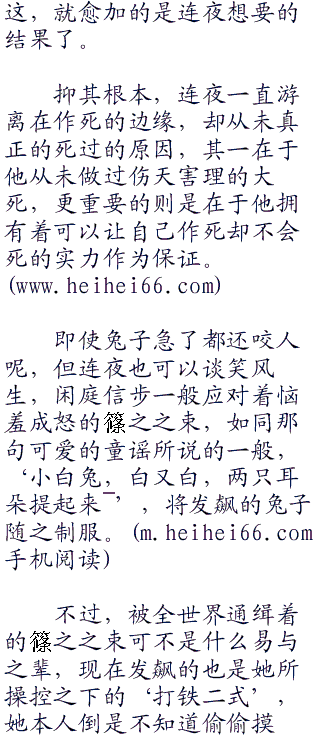 这，就愈加的是连夜想要的
结果了。
抑其根本，连夜一直游
离在作死的边缘，却从未真
正的死过的原因，其一在于
他从未做过伤天害理的大
死，更重要的则是在于他拥
有着可以让自己作死却不会
死的实力作为保证。
(www.heihei66.com)
即使兔子急了都还咬人
呢，但连夜也可以谈笑风
生，闲庭信步一般应对着恼
羞成怒的篠之之束，如同那
句可爱的童谣所说的一般，
‘小白兔，白又白，两只耳
朵提起来~’，将发飙的兔子
随之制服。(m.heihei66.com
手机阅读)
不过，被全世界通缉着
的篠之之束可不是什么易与
之辈，现在发飙的也是她所
操控之下的‘打铁二式’，
她本人倒是不知道偷偷摸